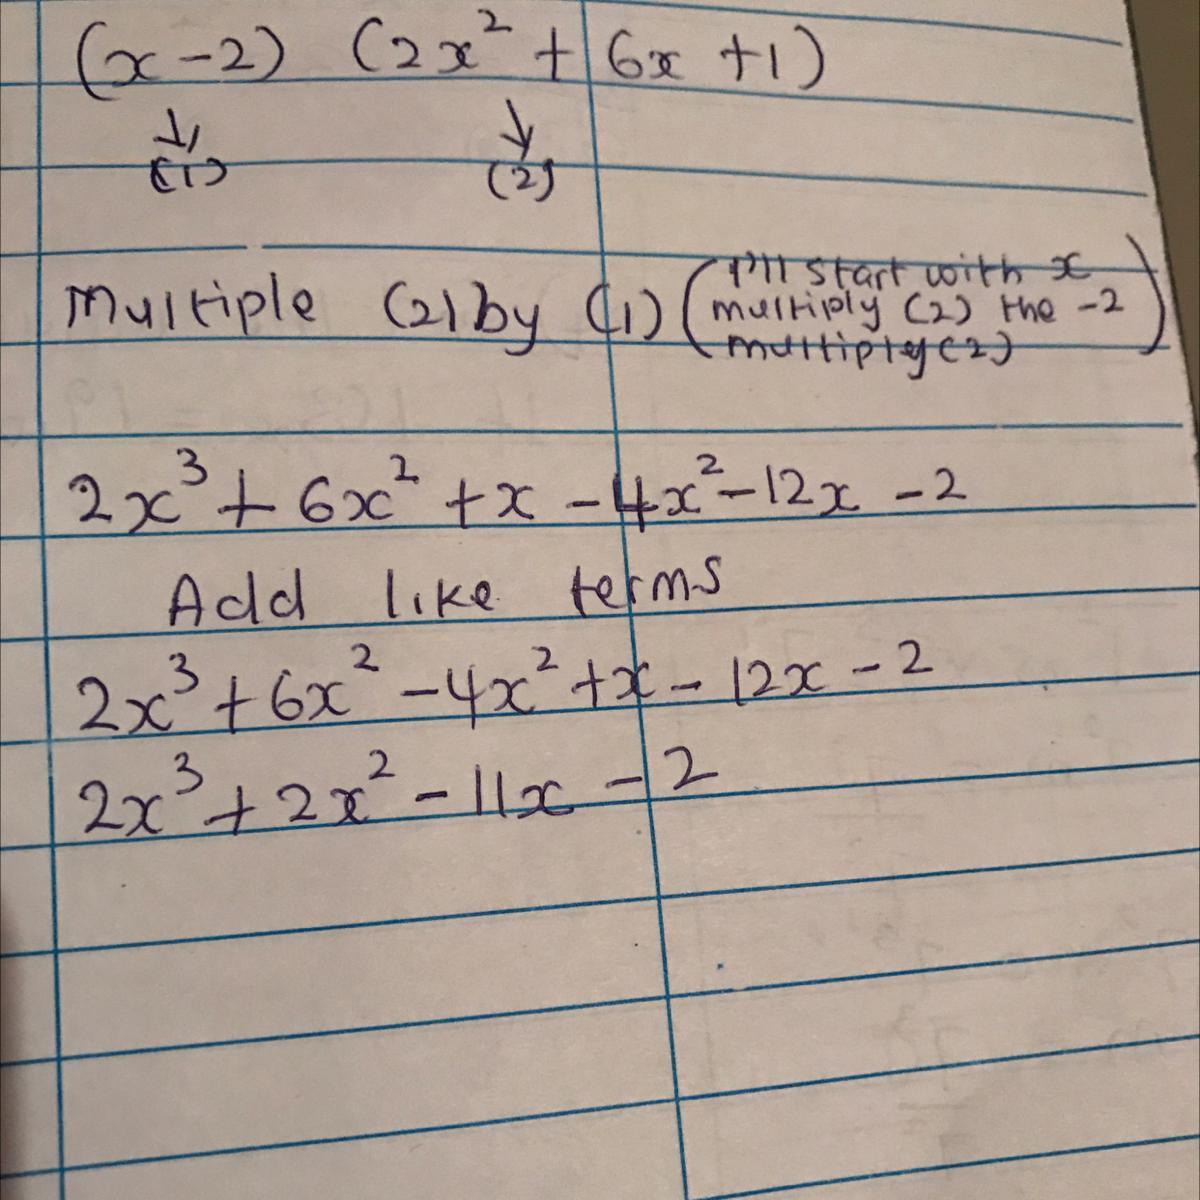 (x - 2) (2x² + 6x + 1)
(1) (2)
Multiple (2) by (1) (I'll start with x
multiply (2) the -2
multiply (2))
2x³ + 6x² + x - 4x² - 12x - 2
Add like terms
2x³ + 6x² - 4x² + x - 12x - 2
2x³ + 2x² - 11x - 2